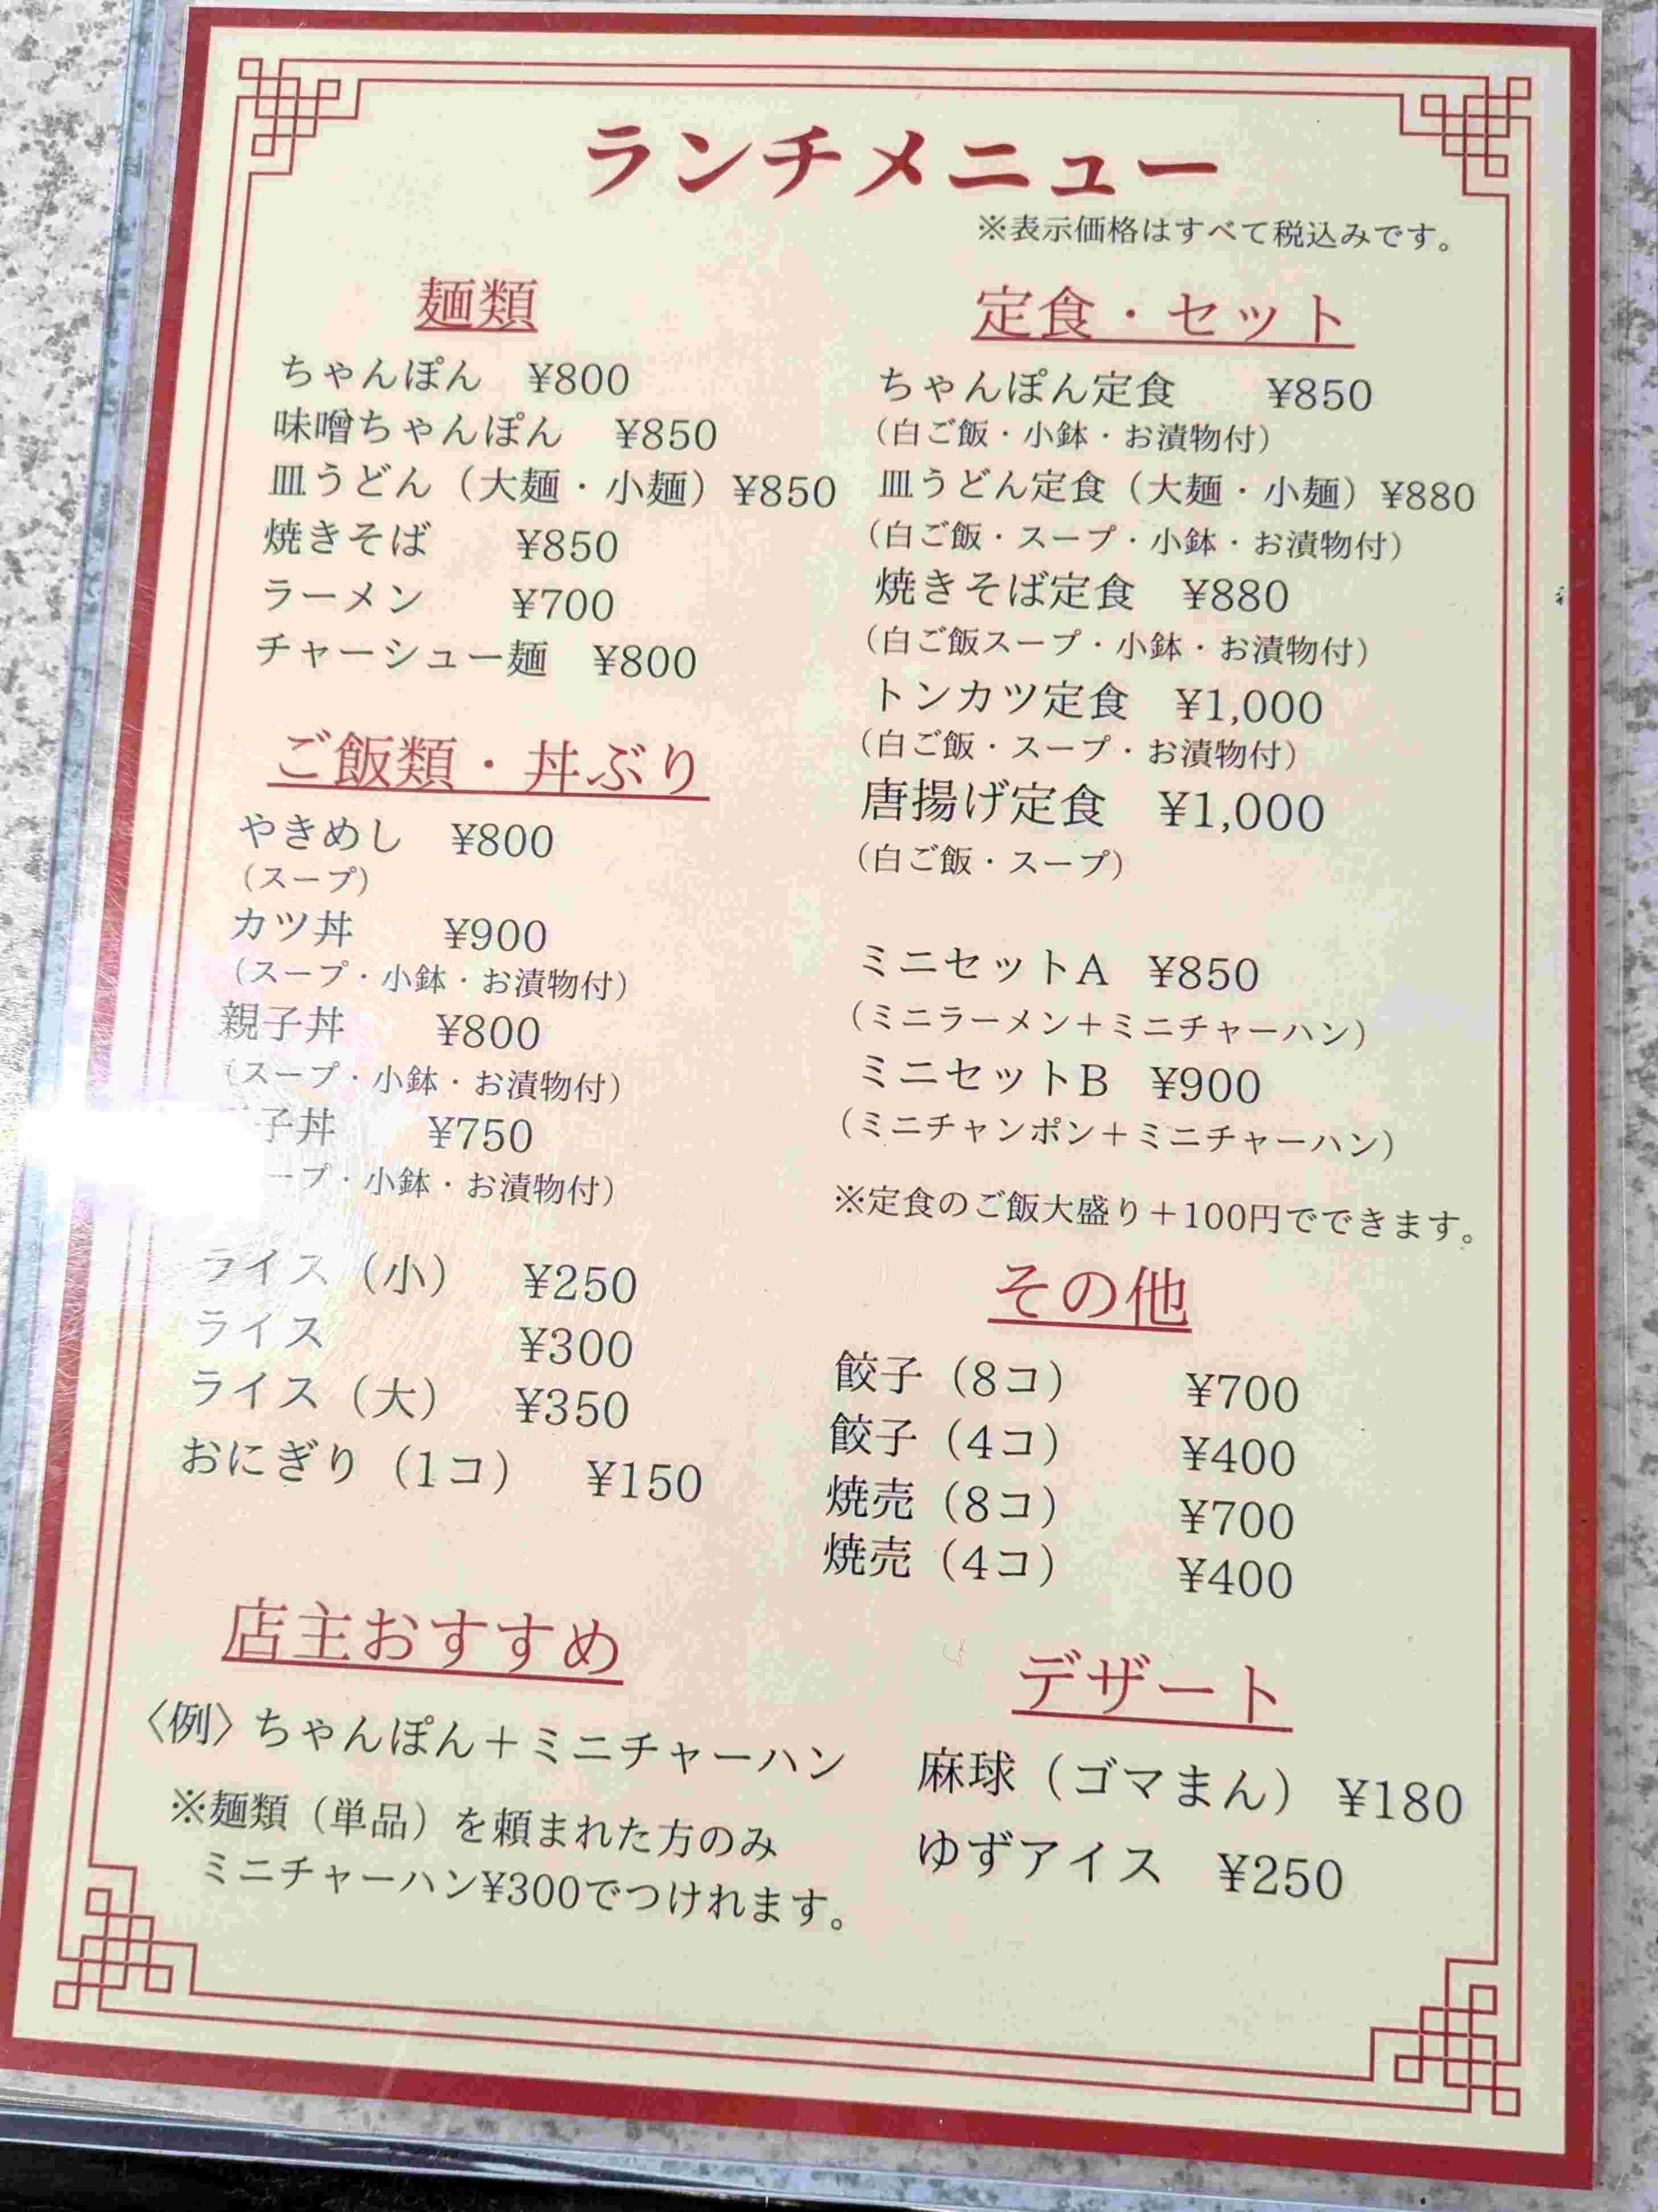 ランチメニュー
※表示価格はすべて税込みです。
麺類
ちゃんぽん ¥800
味噌ちゃんぽん ¥850
皿うどん（大麺・小麺）¥850
焼きそば ¥850
ラーメン ¥700
チャーシュー麺 ¥800
ご飯類・丼ぶり
やきめし ¥800
（スープ）
カツ丼 ¥900
（スープ・小鉢・お漬物付）
親子丼 ¥800
（スープ・小鉢・お漬物付）
子丼 ¥750
ープ・小鉢・お漬物付）
ライス（小） ¥250
ライス ¥300
ライス（大） ¥350
おにぎり（1コ） ¥150
店主おすすめ
〈例〉ちゃんぽん＋ミニチャーハン
※麺類（単品）を頼まれた方のみ
ミニチャーハン¥300でつけれます。
定食・セット
ちゃんぽん定食 ¥850
（白ご飯・小鉢・お漬物付）
皿うどん定食（大麺・小麺）¥880
（白ご飯・スープ・小鉢・お漬物付）
焼きそば定食 ¥880
（白ご飯スープ・小鉢・お漬物付）
トンカツ定食 ¥1,000
（白ご飯・スープ・お漬物付）
唐揚げ定食 ¥1,000
（白ご飯・スープ）
ミニセットA ¥850
（ミニラーメン＋ミニチャーハン）
ミニセットB ¥900
（ミニチャンポン＋ミニチャーハン）
※定食のご飯大盛り＋100円でできます。
その他
餃子（8コ） ¥700
餃子（4コ） ¥400
焼売（8コ） ¥700
焼売（4コ） ¥400
デザート
麻球（ゴマまん） ¥180
ゆずアイス ¥250